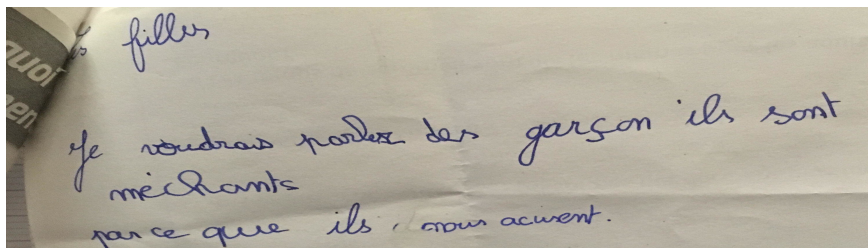 quoi
filles
Je voudrais parler des garçon ils sont
méchants
parce que ils, nous acusent.